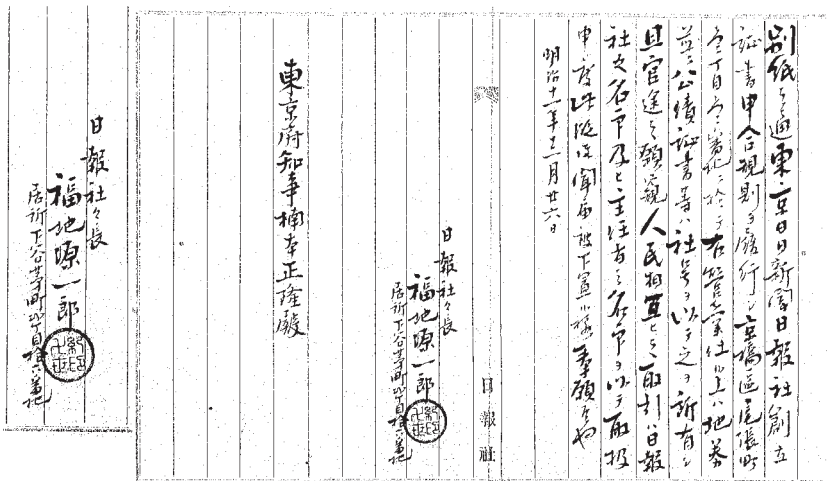 別紙之通東京日日新聞日報社創立
証書申合規則ヲ履行シ京橋区尾張町
壱丁目壱番地ニ於テ右営業仕候上ハ地券
並ニ公債証書等ハ社号ヲ以テ之ヲ所有シ
且官途之願窺人民相互ヒ之取引ハ日報
社之名印及ヒ主任者之名印ヲ以テ取扱
申度此段御聞届被下置候様奉願候也
明治十一年十二月廿六日
日報社々長
福地源一郎
居所下谷茅町弐丁目拾六番地
東京府知事楠本正隆殿
日報社
日報社々長
福地源一郎
居所下谷茅町弐丁目拾六番地